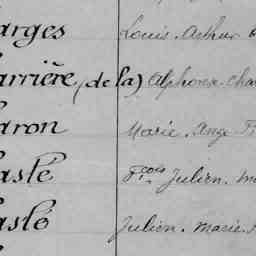 arges Louis. Arthur
arrière, (de la) Alphonse. Cha
aron Marie. Ange. F
aslé Fçois Julien. M
aslé Julien. Marie.